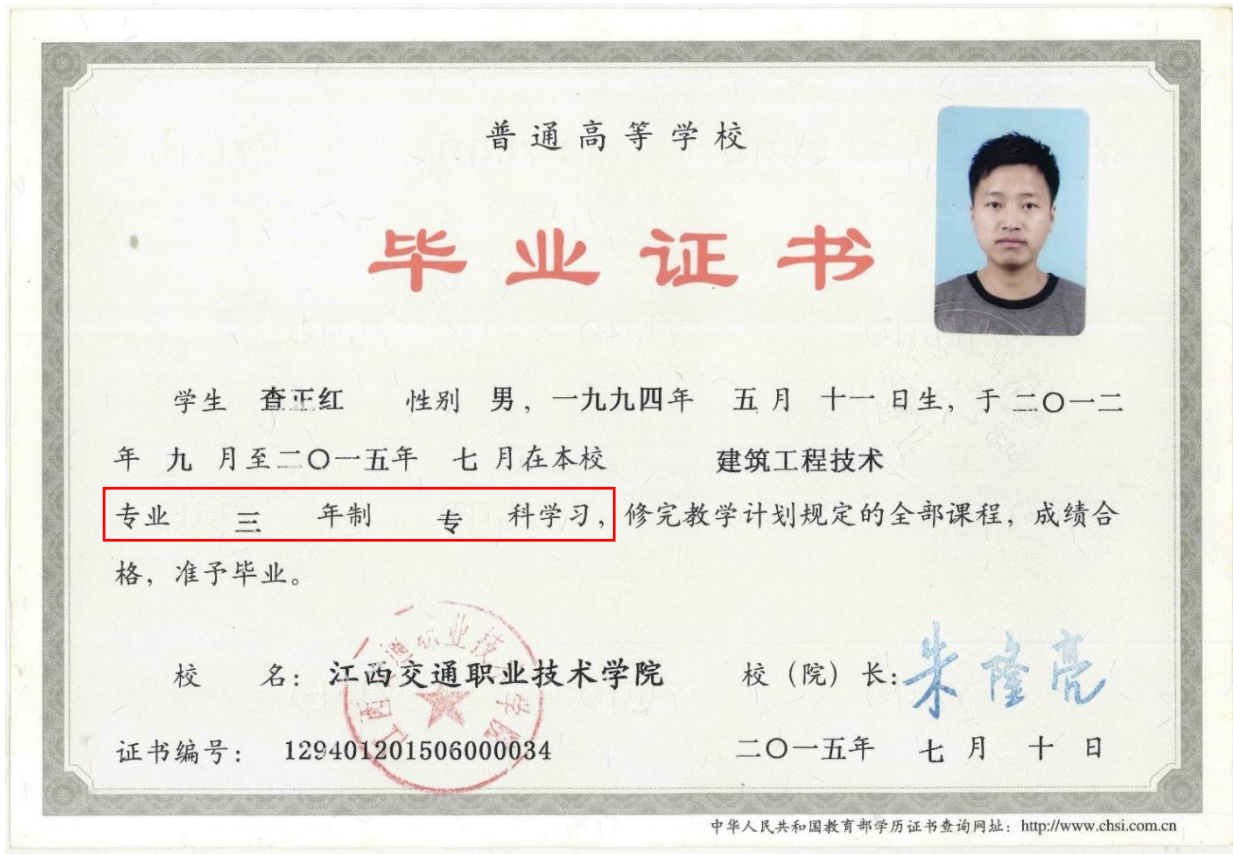 普通高等学校
毕业证书
学生 查正红 性别 男，一九九四年 五月 十一日生，于二〇一二
年 九 月至二〇一五年 七月在本校 建筑工程技术
专业 三 年制 专 科学习，修完教学计划规定的全部课程，成绩合
格，准予毕业。
校 名：江西交通职业技术学院 校（院）长：朱隆亮
江西交通职业技术学院
证书编号：129401201506000034 二〇一五年 七月 十 日
中华人民共和国教育部学历证书查询网址：http://www.chsi.com.cn